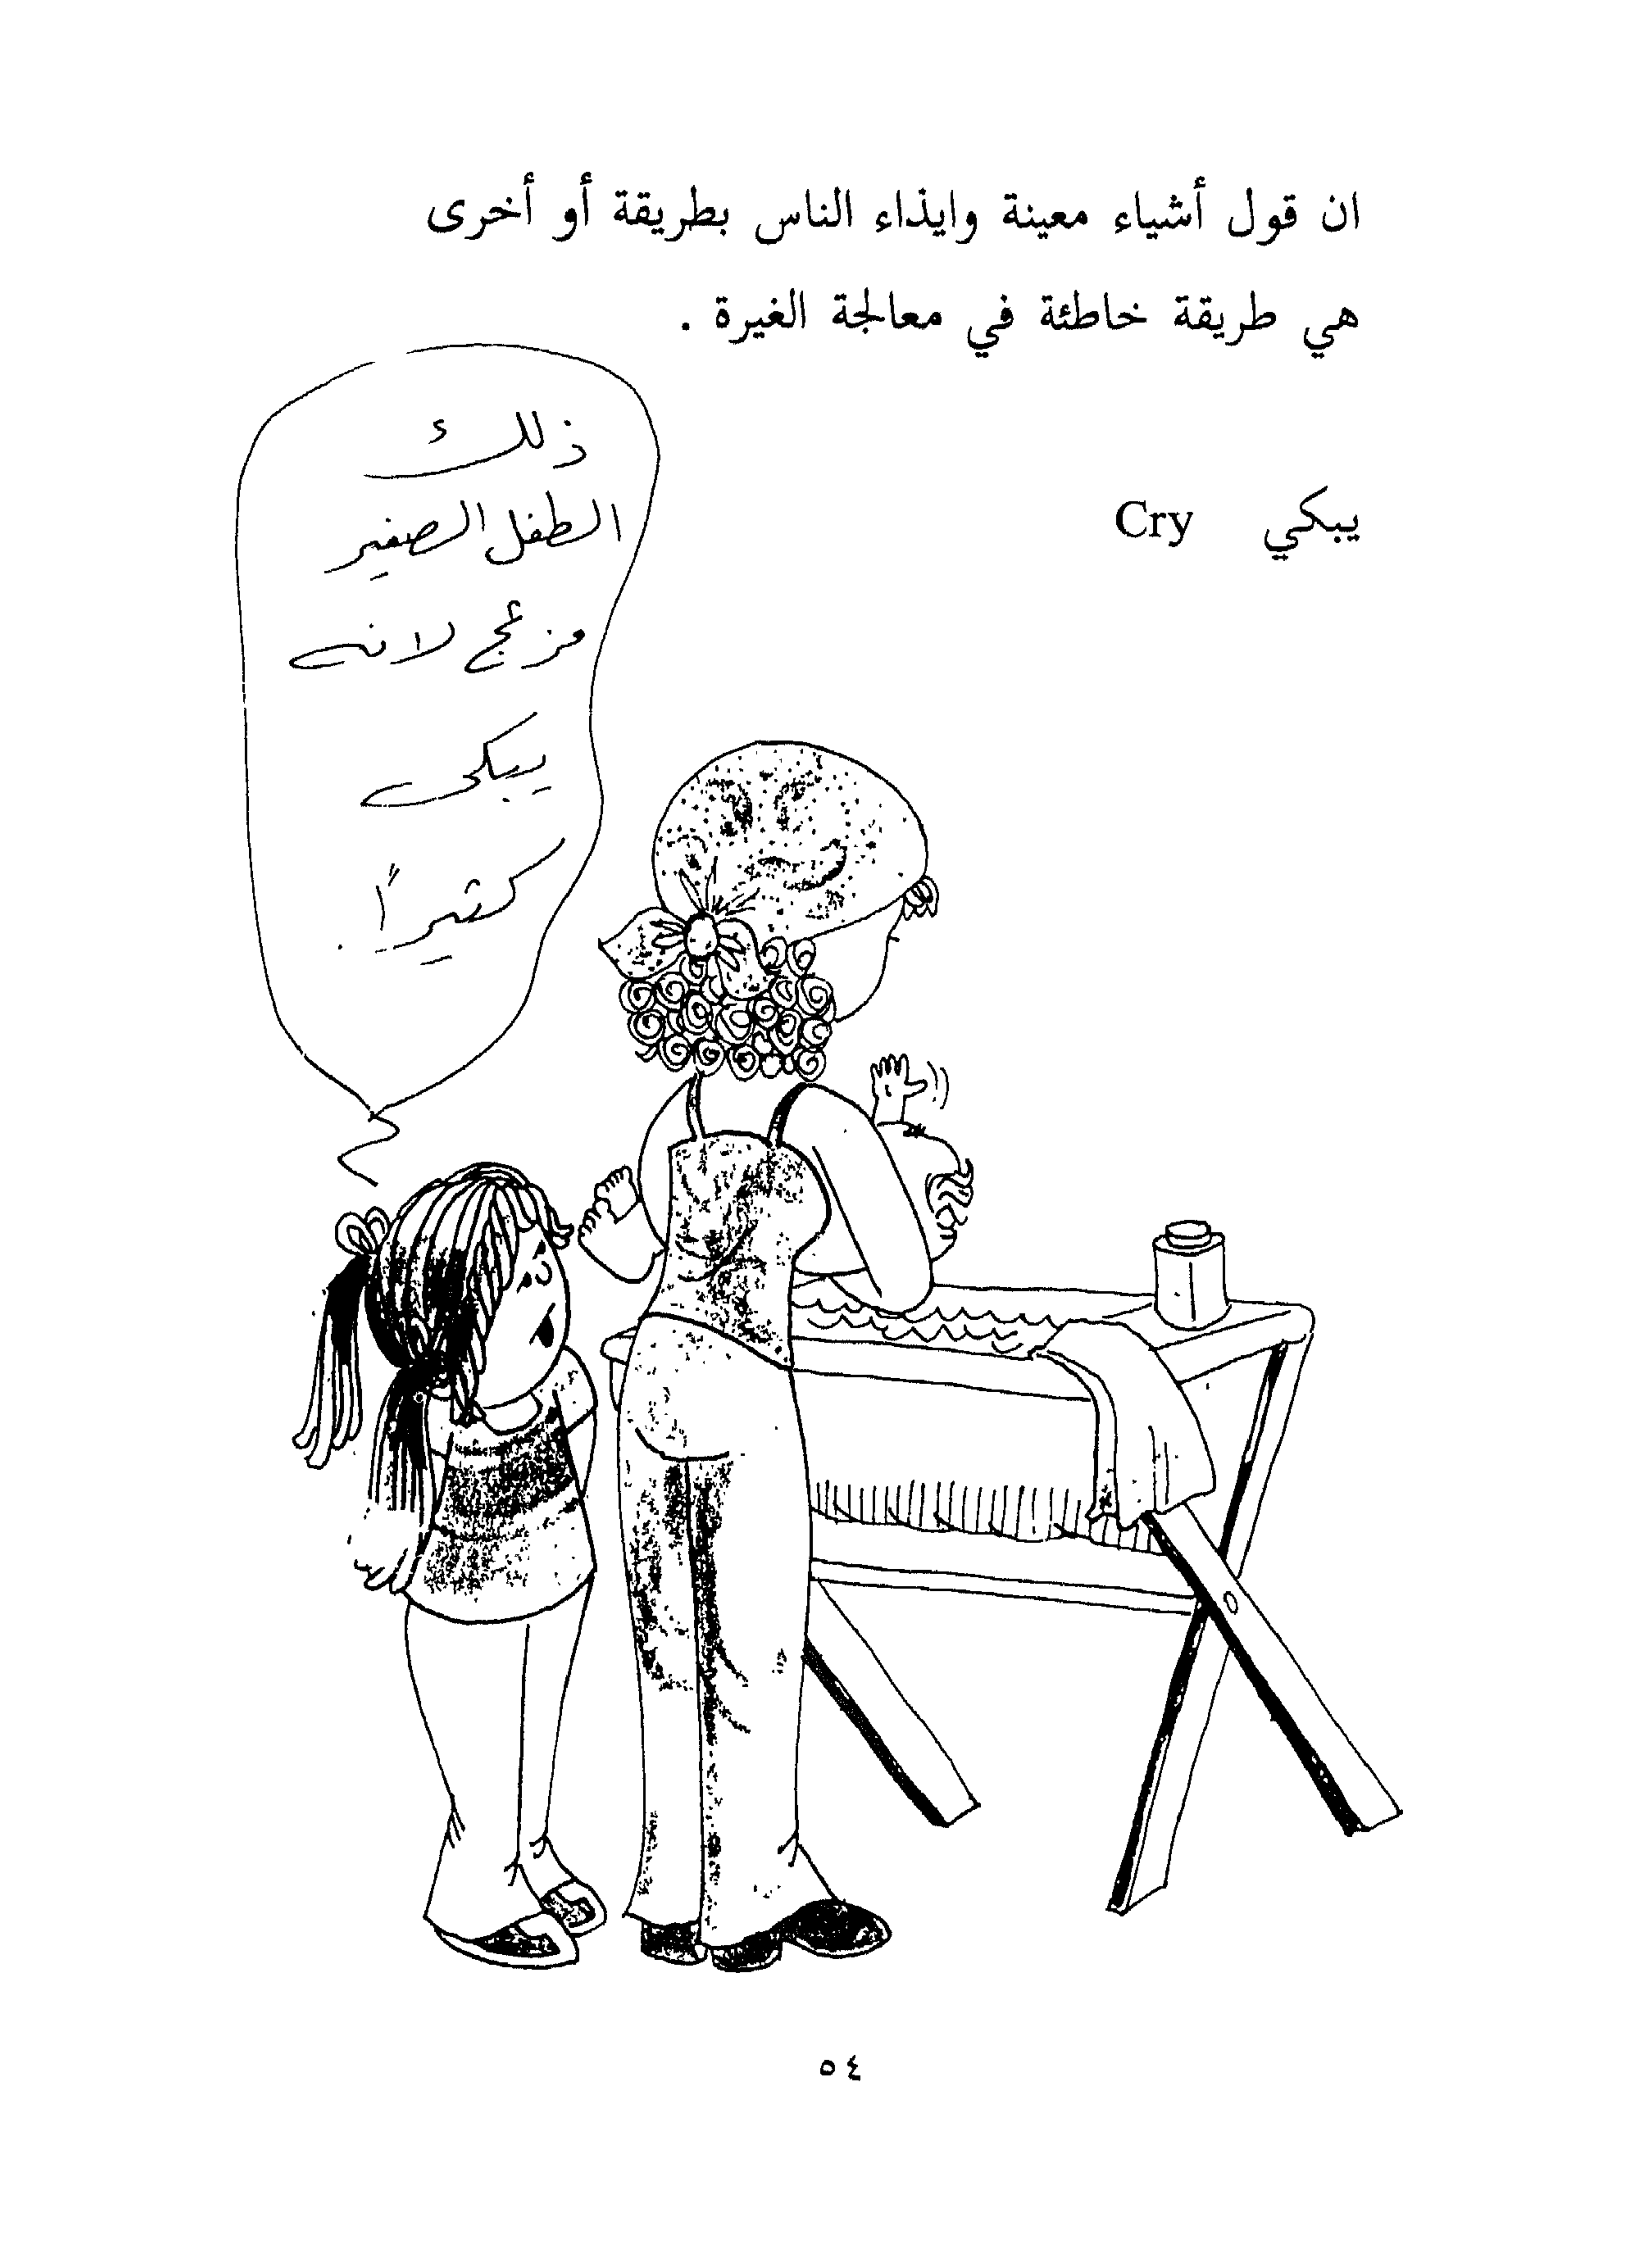 ان قول أشياء معينة وايذاء الناس بطريقة أو أخرى
هي طريقة خاطئة في معالجة الغيرة .
يبكي Cry
ذلك
الطفل الصغير
مزعج لانه
يبكي
كثيراً
٥٤